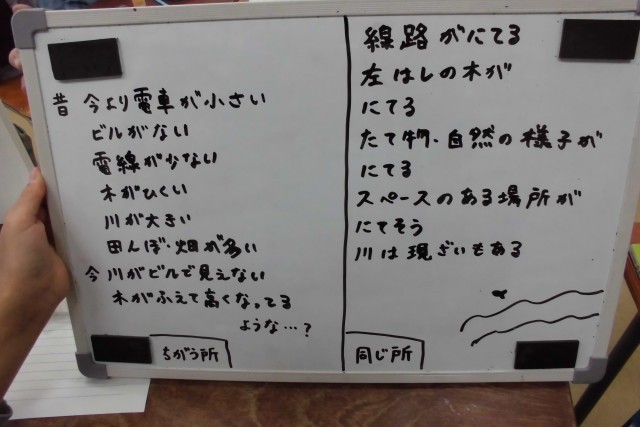 昔 今より電車が小さい
ビルがない
電線が少ない
木がひくい
川が大きい
田んぼ・畑が多い
今 川がビルで見えない
木がふえて高くなってる
ような…?
ちがう所
線路がにてる
左はしの木が
にてる
たて物・自然の様子が
にてる
スペースのある場所が
にてそう
川は現ざいもある
同じ所